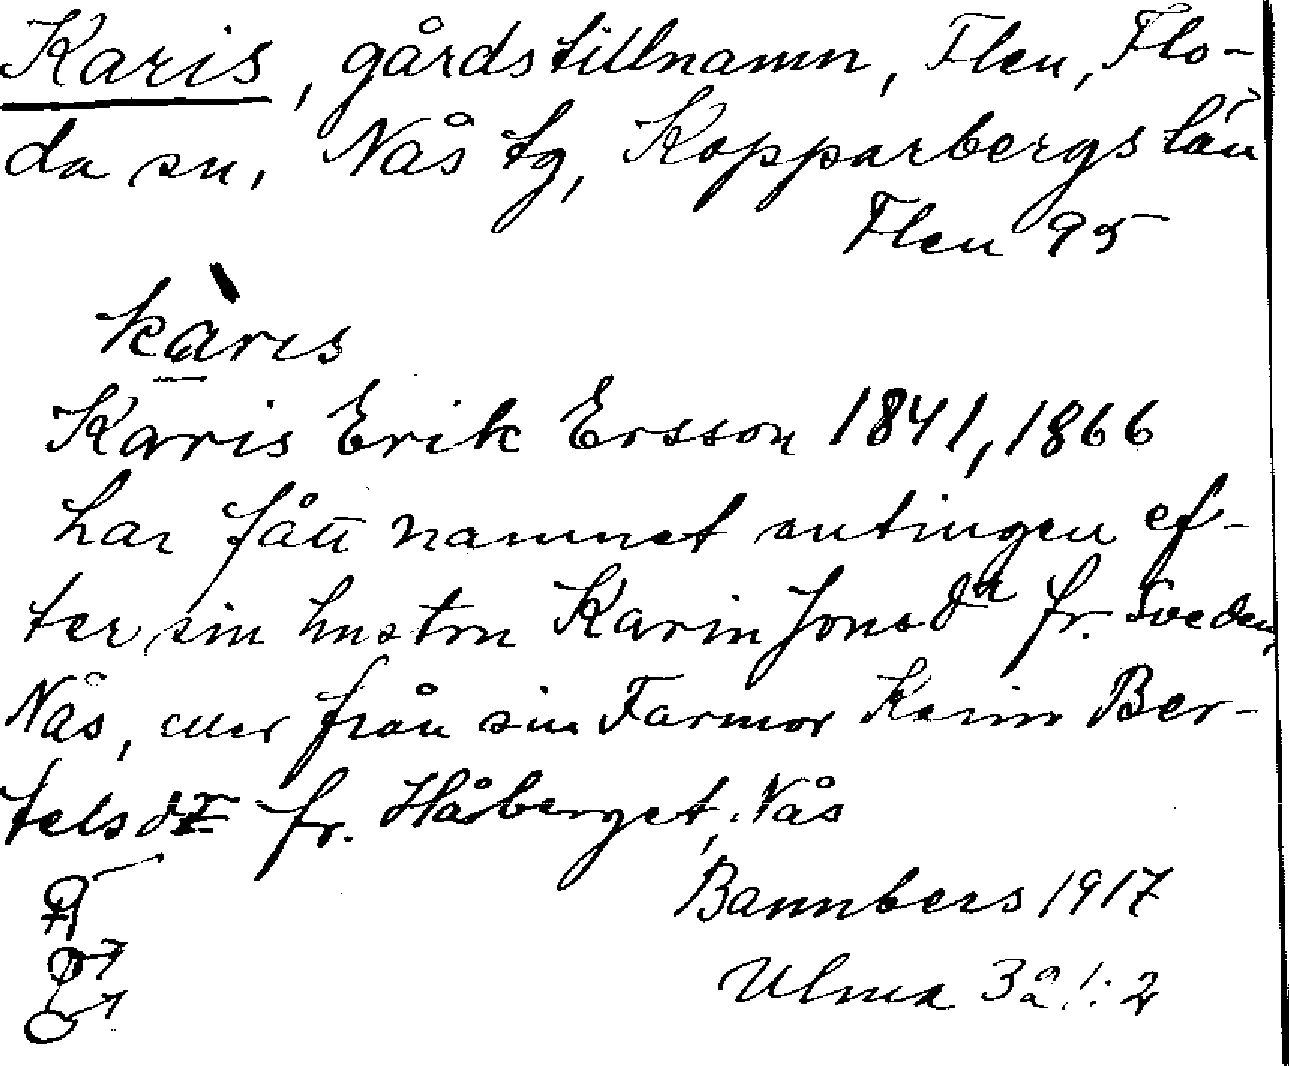 Karis, gårdstillnamn, Flen, Flo-
da sn, Nås tg, Kopparbergs län
Flen 95
kàris
Karis Erik Ersson 1841, 1866
har fått namnet antingen ef-
ter sin hustru Karin Jonsdr fr. Sveden,
Nås, eller från sin Farmor Karin Ber-
telsdr fr. Håberget, Nås
Bannbers 1917
Ulma 321:2